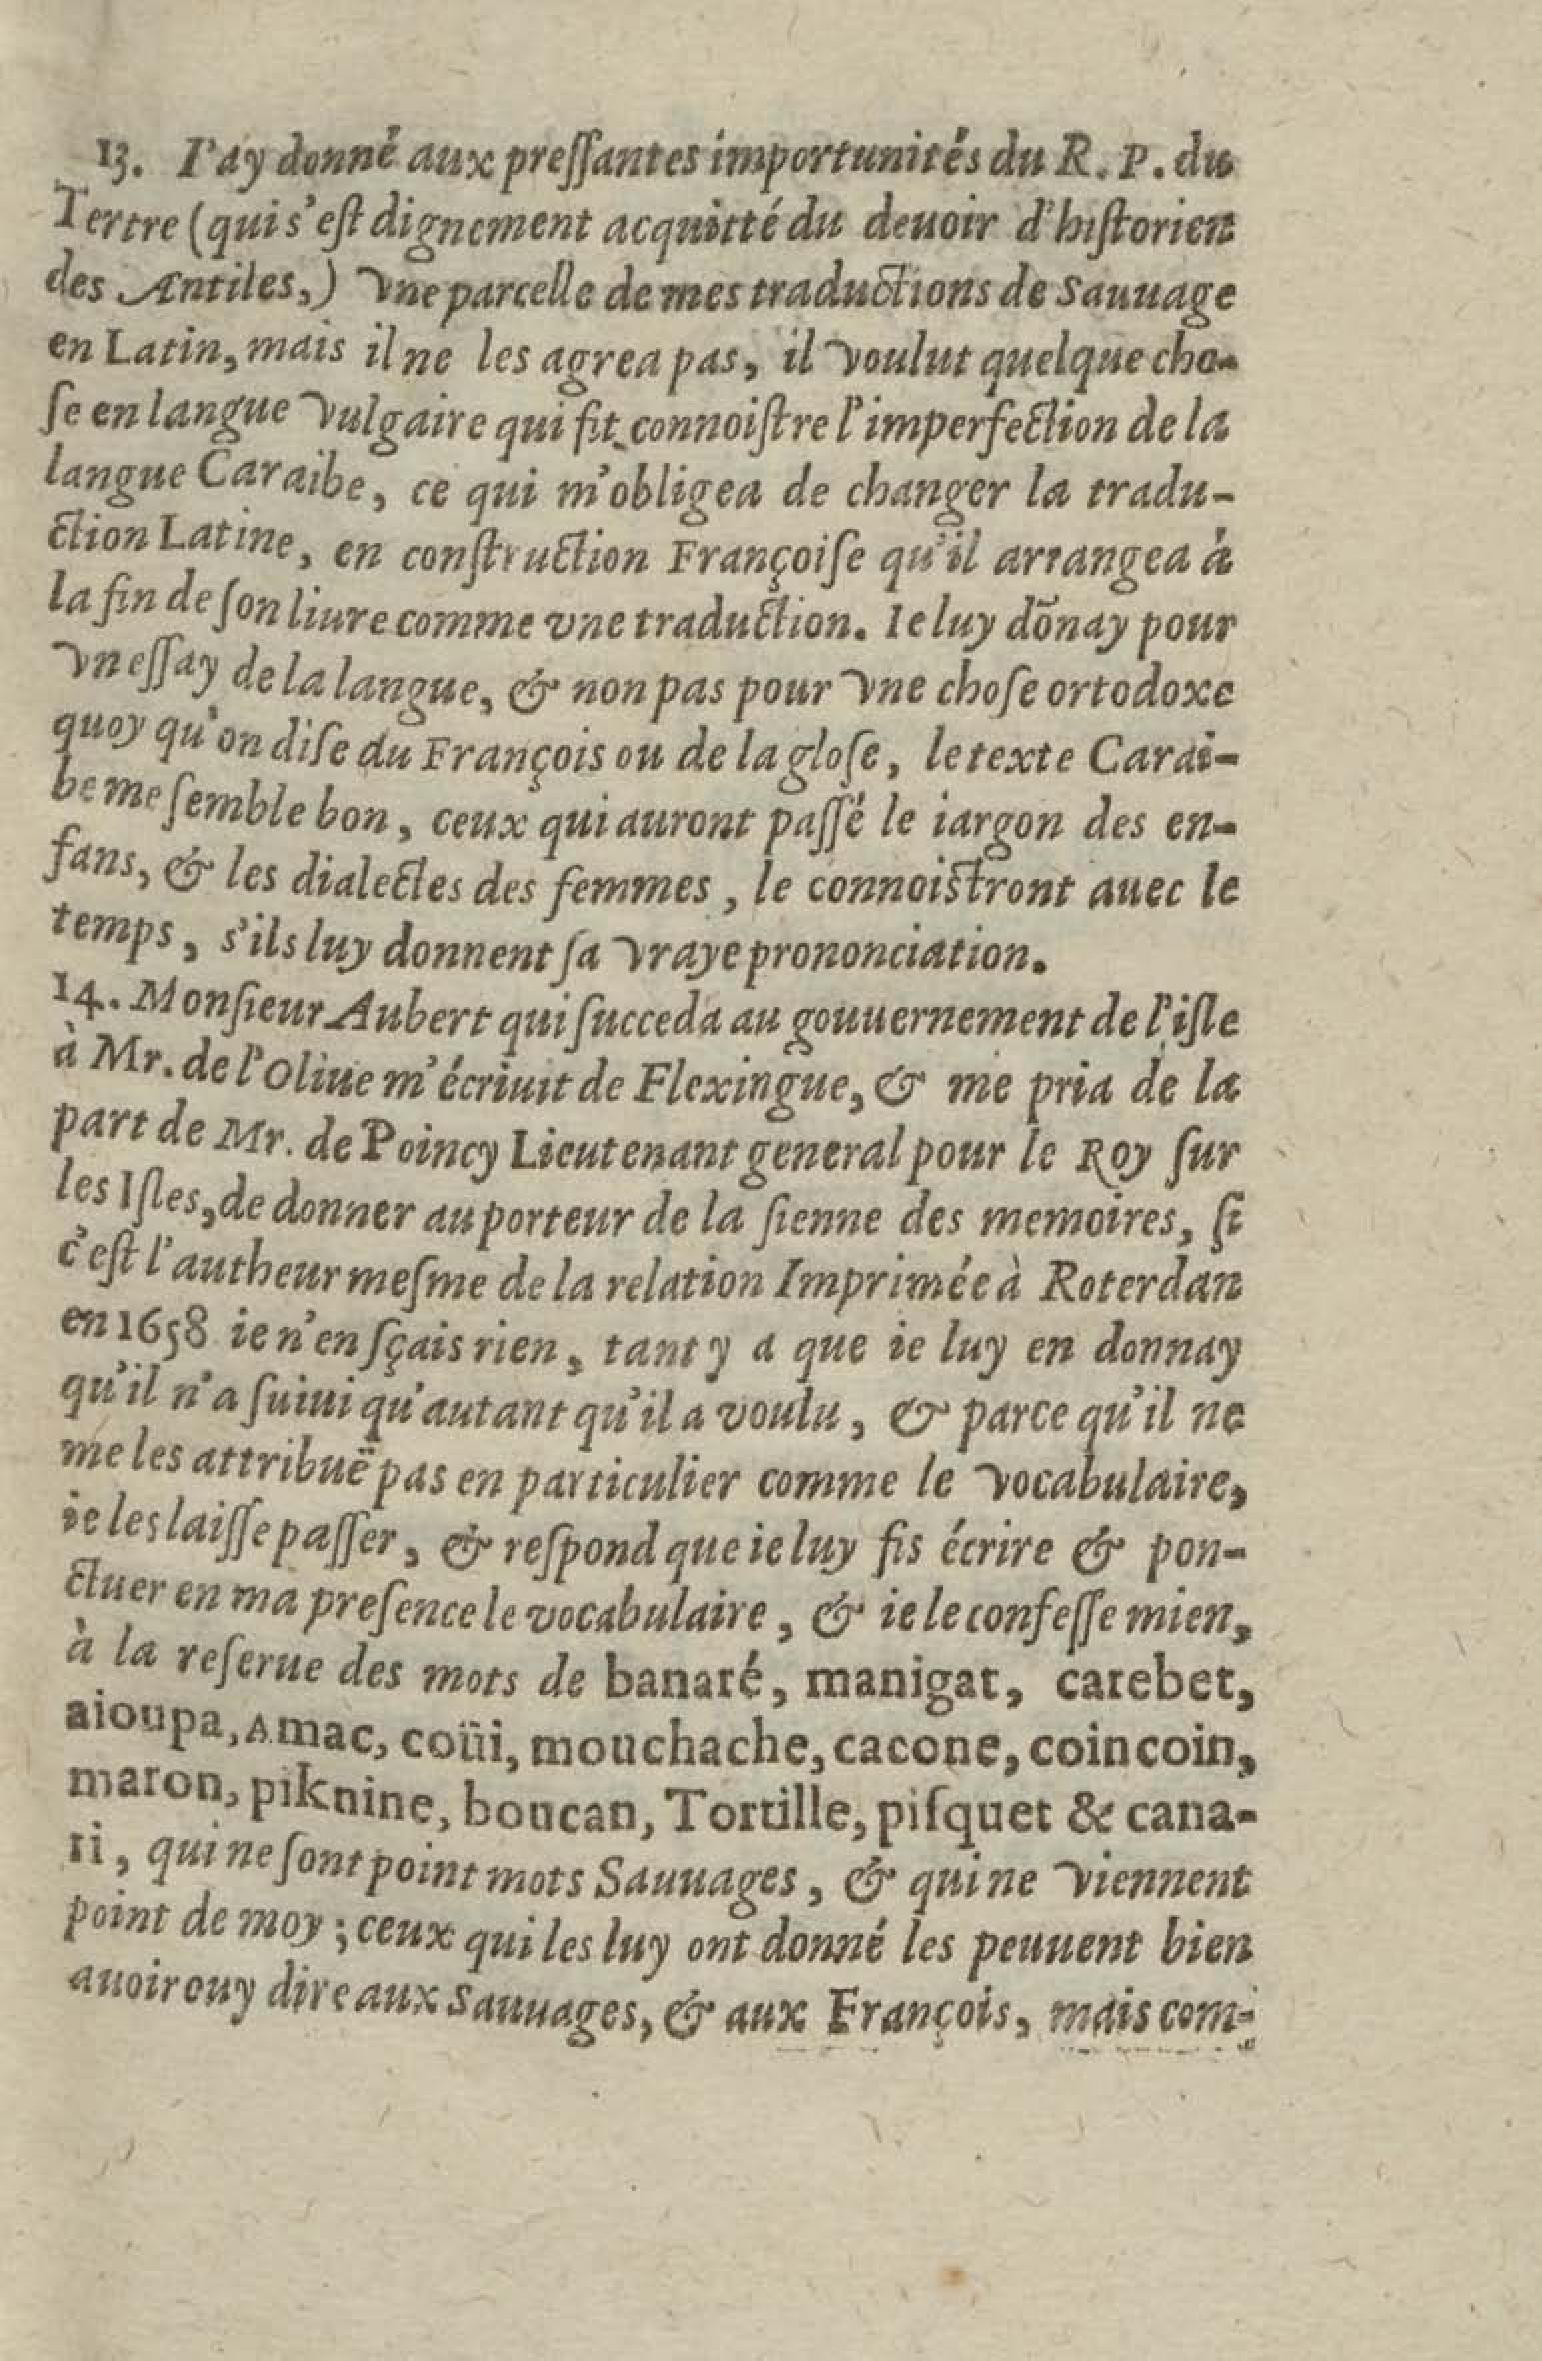 13. I'ay donné aux preſſantes importunités du R. P. du
Tertre (qui s'eſt dignement acquitté du deuoir d'hiſtorien
des Antiles,) vne parcelle de mes traductions de Sauuage
en Latin, mais il ne les agrea pas, il voulut quelque cho-
ſe en langue vulgaire qui fit connoiſtre l'imperfection de la
langue Caraibe, ce qui m'obligea de changer la tradu-
ction Latine, en conſtruction Françoiſe qu'il arrangea à
la fin de ſon liure comme vne traduction. Ie luy dōnay pour
vn eſſay de la langue, & non pas pour vne choſe ortodoxe
quoy qu'on diſe du François ou de la gloſe, le texte Carai-
be me ſemble bon, ceux qui auront paſſé le iargon des en-
fans, & les dialectes des femmes, le connoiſtront auec le
temps, s'ils luy donnent ſa vraye prononciation.
14. Monſieur Aubert qui ſucceda au gouuernement de l'iſle
à Mr. de l'Oliue m'écriuit de Flexingue, & me pria de la
part de Mr. de Poincy Lieutenant general pour le Roy ſur
les Iſles, de donner au porteur de la ſienne des memoires, ſi
c'eſt l'autheur meſme de la relation Imprimée à Roterdan
en 1658 ie n'en ſçais rien, tant y a que ie luy en donnay
qu'il n'a ſuiui qu'autant qu'il a voulu, & parce qu'il ne
me les attribuë pas en particulier comme le vocabulaire,
ie les laiſſe paſſer, & reſpond que ie luy fis écrire & pon-
ctuer en ma preſence le vocabulaire, & ie le confeſſe mien,
à la reſerue des mots de banaré, manigat, carebet,
aioupa, Amac, coüi, mouchache, cacone, coincoin,
maron, piknine, boucan, Tortille, piſquet & cana-
ri, qui ne ſont point mots Sauuages, & qui ne viennent
point de moy ; ceux qui les luy ont donné les peuuent bien
auoir ouy dire aux Sauuages, & aux François, mais com-